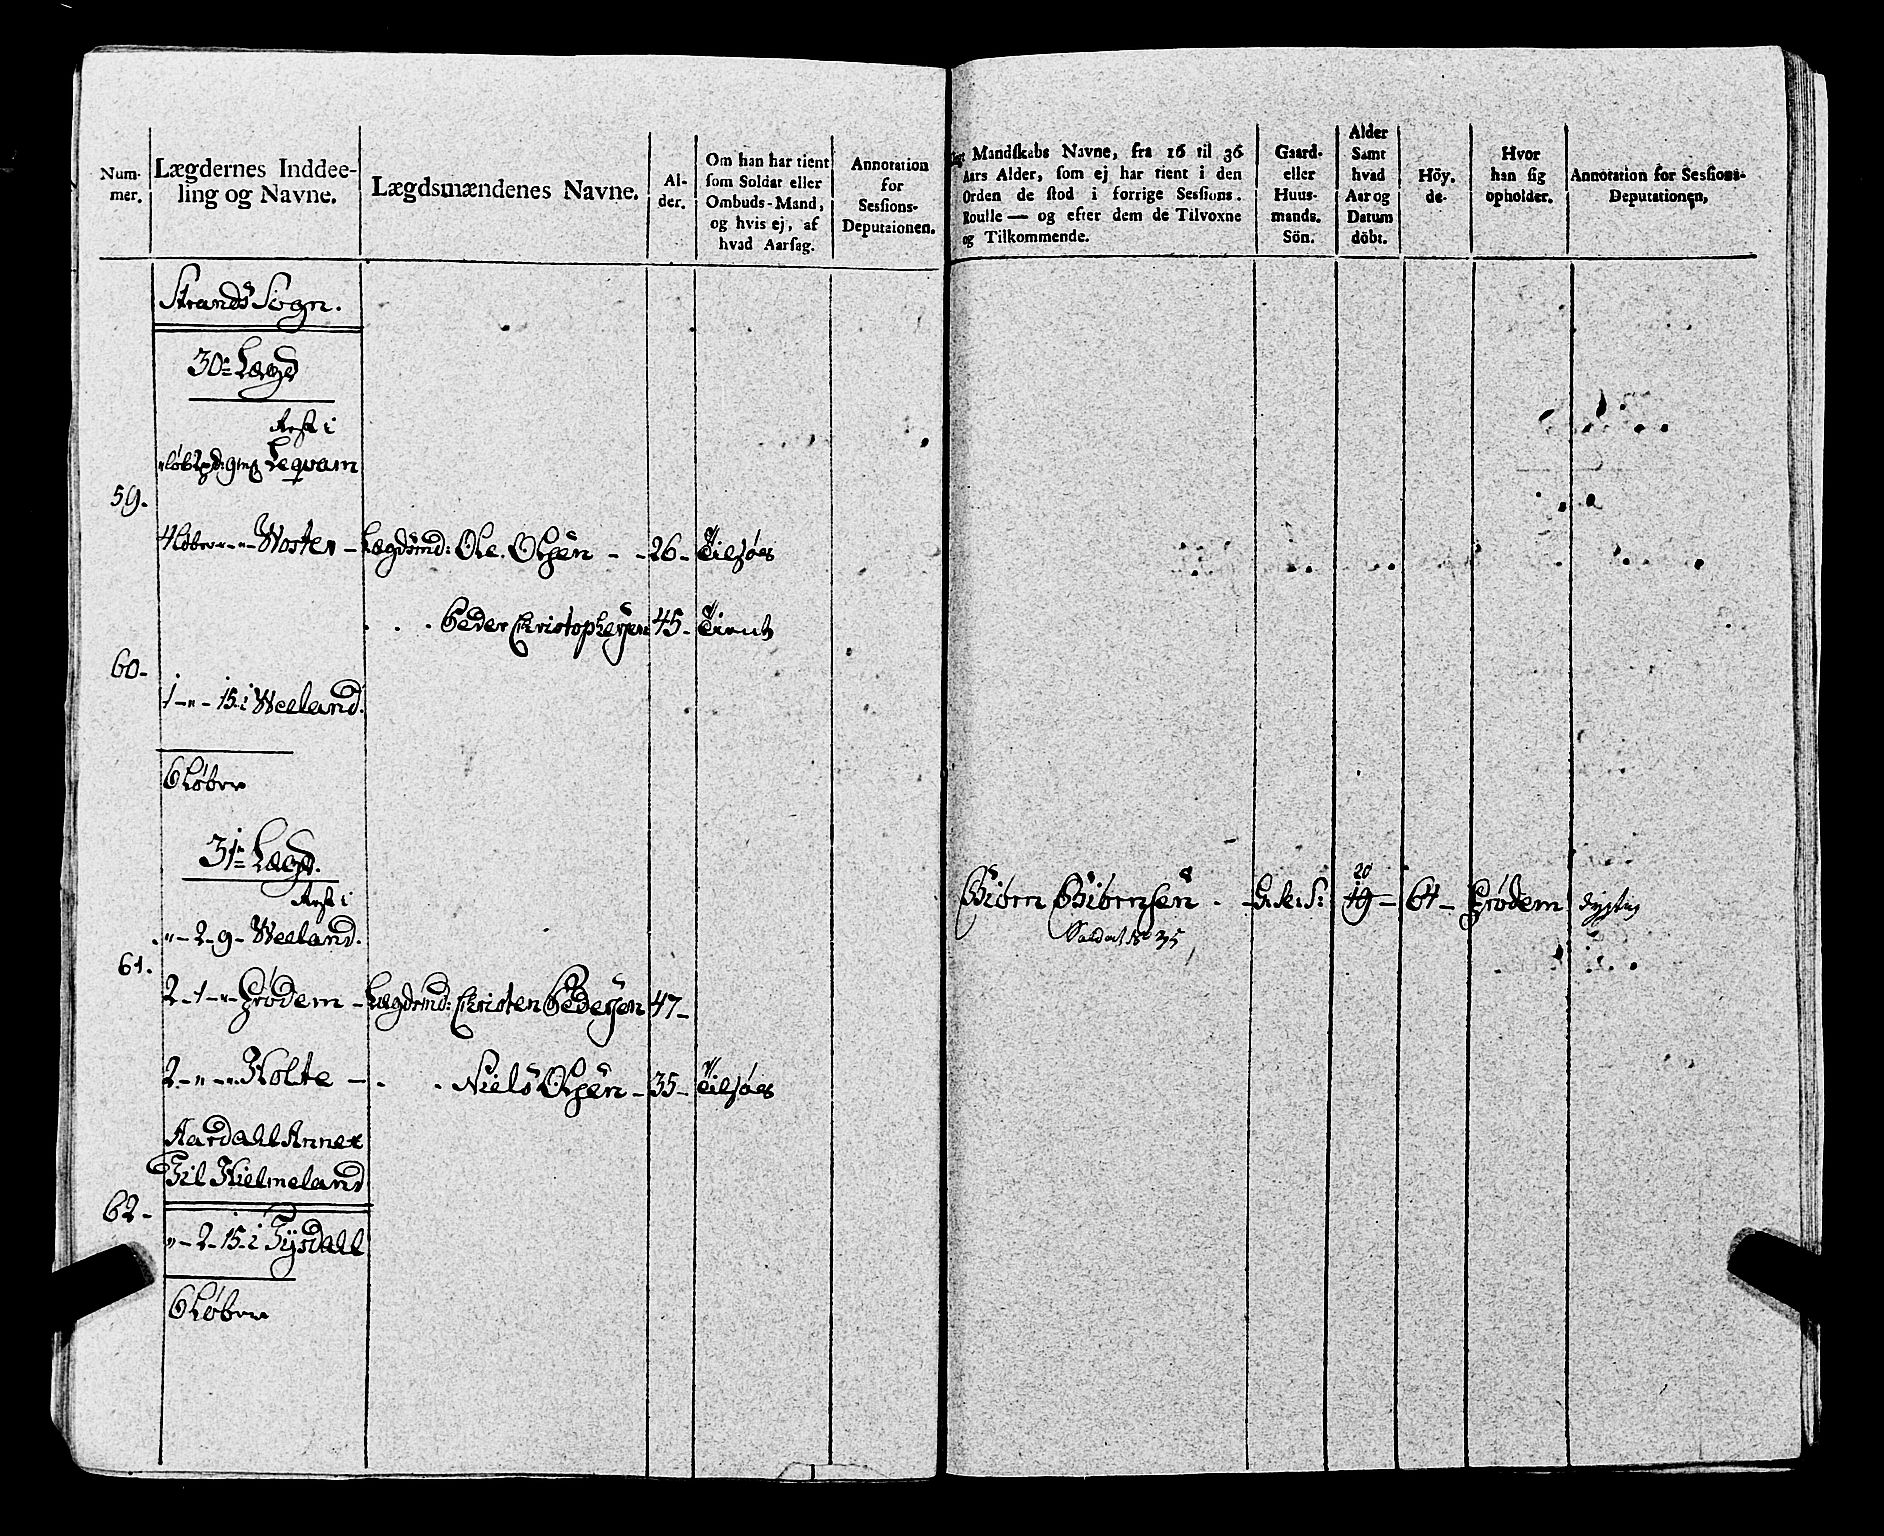 Num-
mer.
Lægdernes Inddee-
ling og Navne.
Lægdsmændenes Navne.
Al-
der.
Om han har tient
som Soldat eller
Ombuds-Mand,
og hvis ej, af
hvad Aarsag.
Annotation
for
Sessions-
Deputaionen.
Mandskabs Navne, fra 16 til 36
Aars Alder, som ej har tient i den
Orden de stod i forrige Sessions.
Roulle — og efter dem de Tilvoxne
og Tilkommende.
Gaard-
eller
Huus-
mands.
Sön.
Alder
Samt
hvad
Aar og
Datum
döbt.
Höy.
de.
Hvor
han sig
opholder.
Annotation for Sessions-
Deputationen,
Strands Sogn.
30te Lægd
Rest i
Leqvam
59.
4 Løber - " - " - Wosten - Lægdsmd: Ole Olsen - - 26 -
Peder Christophersen 45 -
60 -
1 - " - 15 i Weeland.
6 Løber
31te Lægd.
Rest i
Biørn Biørnsen - G: S: 20 19 - 64 - Frødem dygtig
Soldat No 35
" - 2 - 9 - Weeland.
61.
2 - 1 - " - Frødem - Lægdsmd: Christen Pedersen 47 -
2 - " - " - Holte - Niels Olsen - 35 -
Aardahl Annex
Til Hielmeland
62 -
" - 2 - 15 i Tysdahl
6 Løber